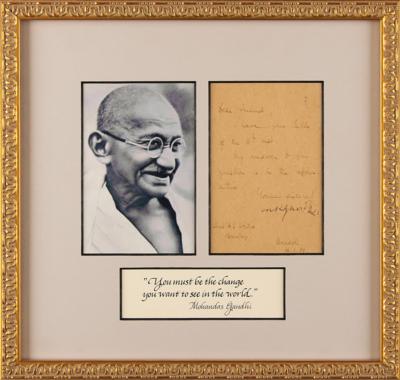 Dear friend
I have your letter
of the 5th inst.
My answer to your
question is in the affir-
mative.
Yours sincerely
MKGandhi
Bombay
"You must be the change
you want to see in the world."
Mohandas Gandhi